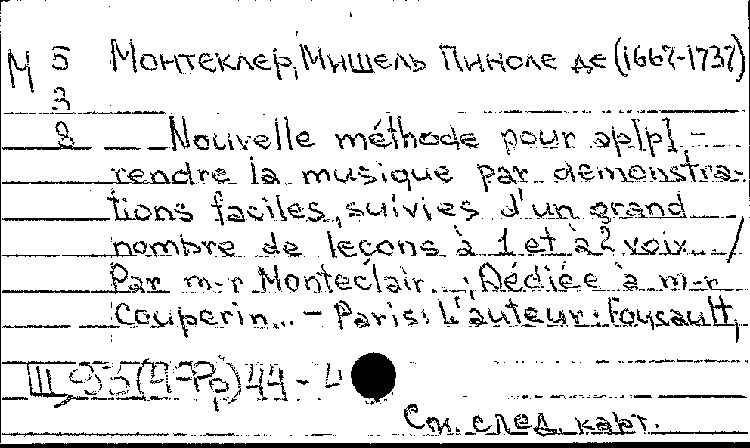 М 5 Монтеклер, Мишель Пиноле де (1667-1737)
3
8 Nouvelle méthode pour ap[p]-
rendre la musique par demonstra-
tions faciles, suivies d'un grand
nombre de leçons à 1 et à 2 voix... /
Par m-r Monteclair...; Dédiée à m-r
Couperin... - Paris: L'auteur: Foucault,
III, 93 (4-Pp) 44 - 4
См. след. карт.